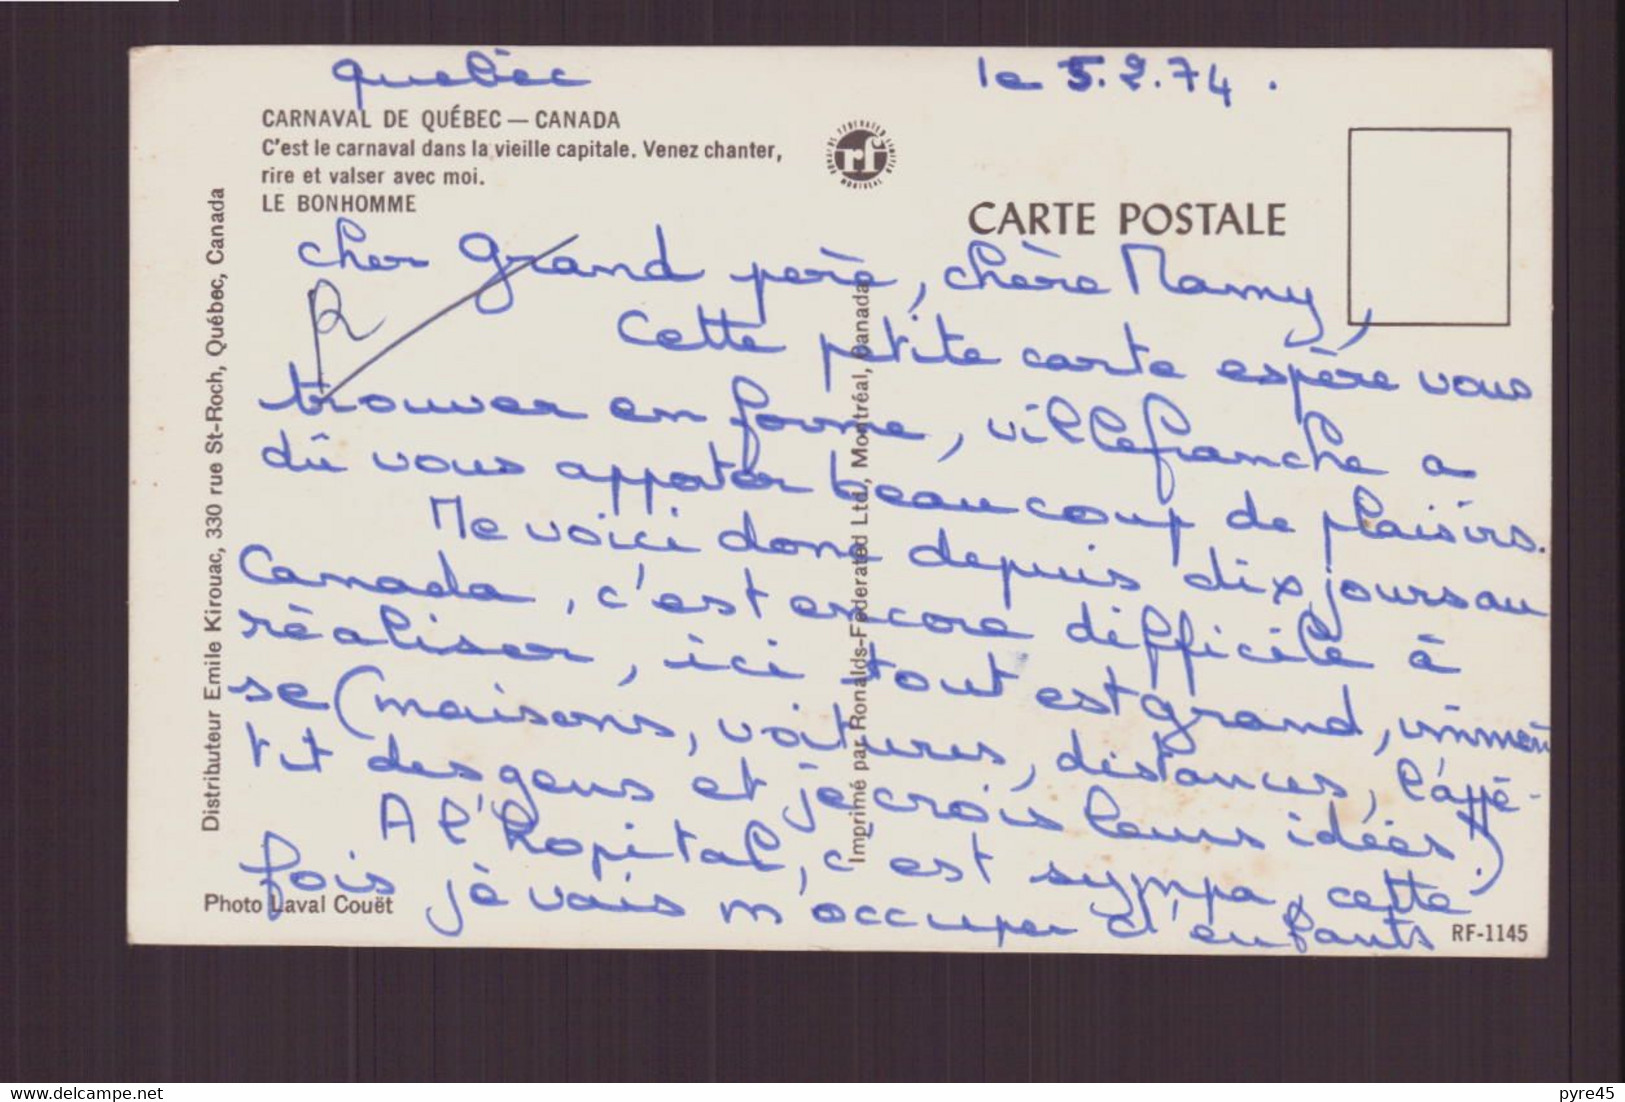 Québec
le 5.2.74.
CARNAVAL DE QUÉBEC — CANADA
C'est le carnaval dans la vieille capitale. Venez chanter,
rire et valser avec moi.
LE BONHOMME
RONALDS FEDERATED LIMITED
rf
MONTREAL
CARTE POSTALE
cher Grand père, chère Mamy,
R
Cette petite carte espère vous
trouver en forme, villefranche a
dû vous apporter beaucoup de plaisirs.
Me voici donc depuis dix jours au
Canada, c'est encore difficile à
réaliser, ici tout est grand, immen
se (maisons, voitures, distances, l'appé-
tit des gens et je crois leurs idées!)
A l'hopital, c'est sympa, cette
fois je vais m'occuper d'enfants
Distributeur Emile Kirouac, 330 rue St-Roch, Québec, Canada
Imprimé par Ronalds-Federated Ltd., Montréal, Canada
Photo Laval Couët
RF-1145
delcampe.net
pyre45